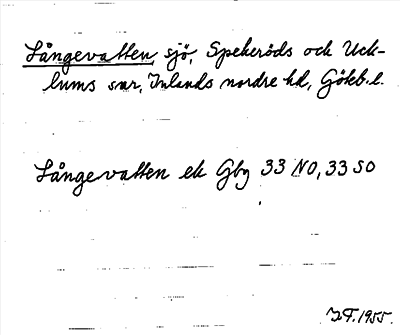 Långevatten, sjö, Spekeröds och Uck-
lums snr, Inlands nordre hd, Göteb. l.
Långevatten ek Gbg 33 NO, 33 SO
I.F. 1955.